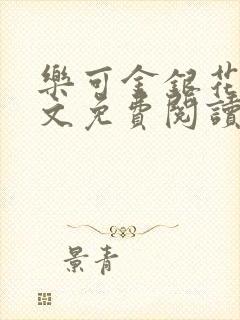 樂可金銀花
文免費閱讀
景青